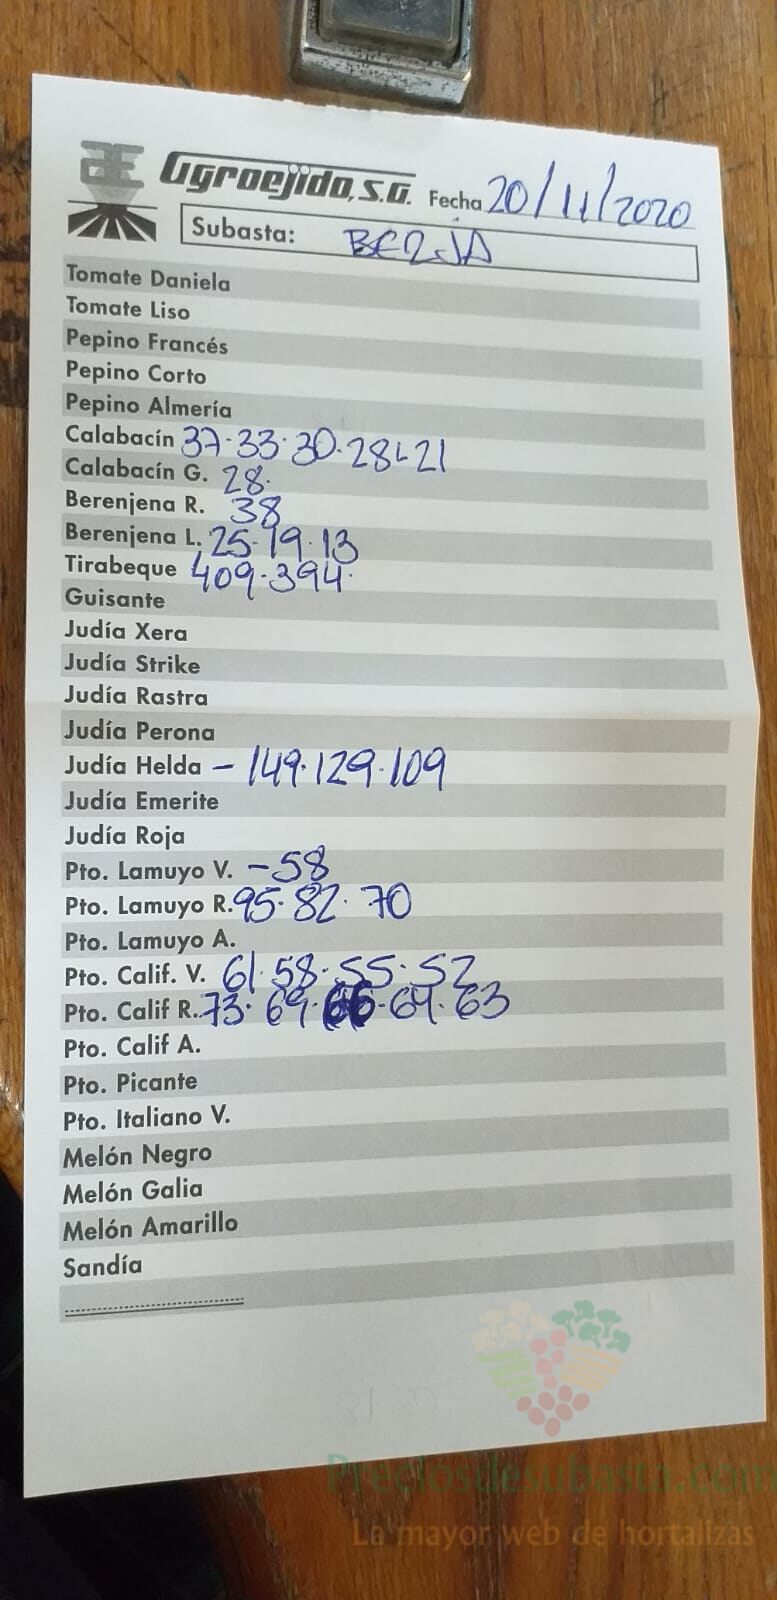 Agroejido, S.A. Fecha 20/11/2020
Subasta: BERJA
Tomate Daniela
Tomate Liso
Pepino Francés
Pepino Corto
Pepino Almería
Calabacín 37.33.30.28-21
Calabacín G. 28.
Berenjena R. 38
Berenjena L. 25.19.13
Tirabeque 409.394.
Guisante
Judía Xera
Judía Strike
Judía Rastra
Judía Perona
Judía Helda - 149.129.109
Judía Emerite
Judía Roja
Pto. Lamuyo V. - 58
Pto. Lamuyo R. 95.82.70
Pto. Lamuyo A.
Pto. Calif. V. 61.58.55.52
Pto. Calif R. 73.69.66.64.63
Pto. Calif A.
Pto. Picante
Pto. Italiano V.
Melón Negro
Melón Galia
Melón Amarillo
Sandía
Preciosdesubasta.com
La mayor web de hortalizas